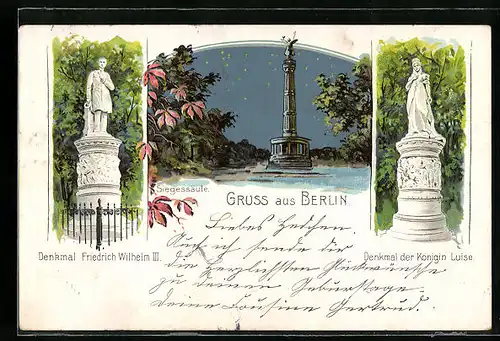 Siegessäule.
GRUSS aus BERLIN
Denkmal Friedrich Wilhelm III.
Denkmal der Königin Luise.
Liebes Hedchen.
Auch ich sende dir
die herzlichsten Glückwünsche
zu deinem Geburtstage.
Deine Cousine Gertrud.